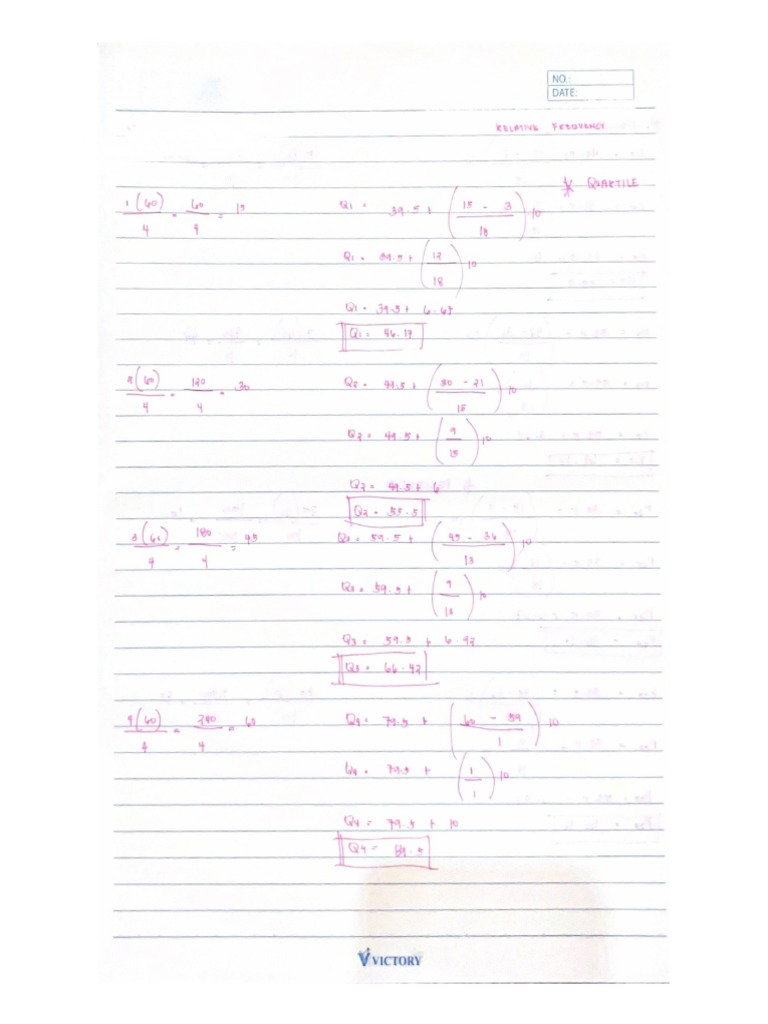 NO.:
DATE:
RELATIVE FREQUENCY
* QUARTILE
1(60)/4 = 60/4 = 15
Q1 = 39.5 + (15 - 3 / 18) 10
Q1 = 39.5 + (12 / 18) 10
Q1 = 39.5 + 6.67
Q1 = 46.17
2(60)/4 = 120/4 = 30
Q2 = 49.5 + (30 - 21 / 15) 10
Q2 = 49.5 + (9 / 15) 10
Q2 = 49.5 + 6
Q2 = 55.5
3(60)/4 = 180/4 = 45
Q3 = 59.5 + (45 - 36 / 13) 10
Q3 = 59.5 + (9 / 13) 10
Q3 = 59.5 + 6.92
Q3 = 66.42
4(60)/4 = 240/4 = 60
Q4 = 79.5 + (60 - 59 / 1) 10
Q4 = 79.5 + (1 / 1) 10
Q4 = 79.5 + 10
Q4 = 89.5
VICTORY